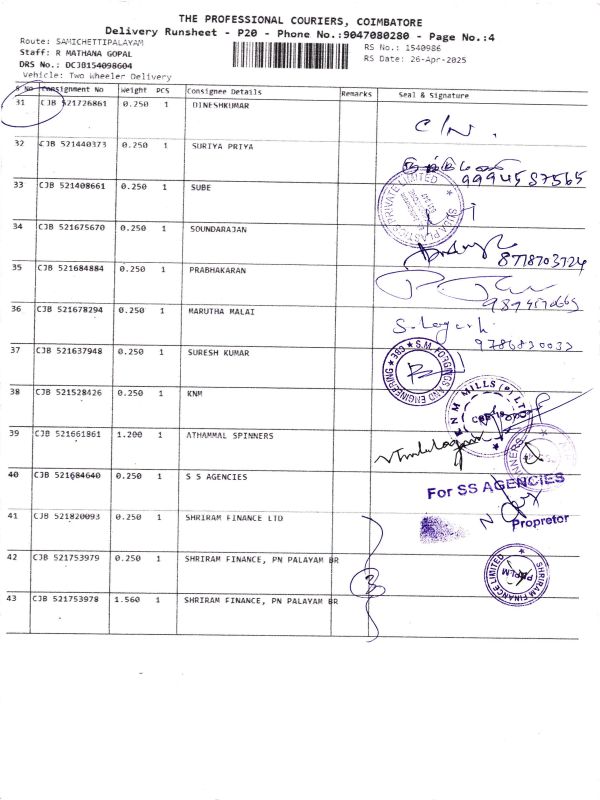 THE PROFESSIONAL COURIERS, COIMBATORE
Delivery Runsheet - P20 - Phone No.:9047080280 - Page No.:4
Route: SAMICHETTIPALAYAM
RS No.: 1540986
Staff: R MATHANA GOPAL
RS Date: 26-Apr-2025
DRS No.: DCJB154098604
Vehicle: Two Wheeler Delivery
S No Consignment No Weight PCS Consignee Details Remarks Seal & Signature
31 CJB 521726861 0.250 1 DINESHKUMAR
C/N.
32 CJB 521440373 0.250 1 SURIYA PRIYA
9994587565
33 CJB 521408661 0.250 1 SUBE
PLASTICS PRIVATE LIMITED
34 CJB 521675670 0.250 1 SOUNDARAJAN
8778703724
35 CJB 521684884 0.250 1 PRABHAKARAN
36 CJB 521678294 0.250 1 MARUTHA MALAI
9786830033
37 CJB 521637948 0.250 1 SURESH KUMAR
S.M. FORGINGS AND ENGINEERING CBE
38 CJB 521528426 0.250 1 KNM
N M MILLS (P) LTD
39 CJB 521661861 1.200 1 ATHAMMAL SPINNERS
40 CJB 521684640 0.250 1 S S AGENCIES
For SS AGENCIES
Propretor
41 CJB 521820093 0.250 1 SHRIRAM FINANCE LTD
42 CJB 521753979 0.250 1 SHRIRAM FINANCE, PN PALAYAM BR
SHRIRAM FINANCE LIMITED
43 CJB 521753978 1.560 1 SHRIRAM FINANCE, PN PALAYAM BR